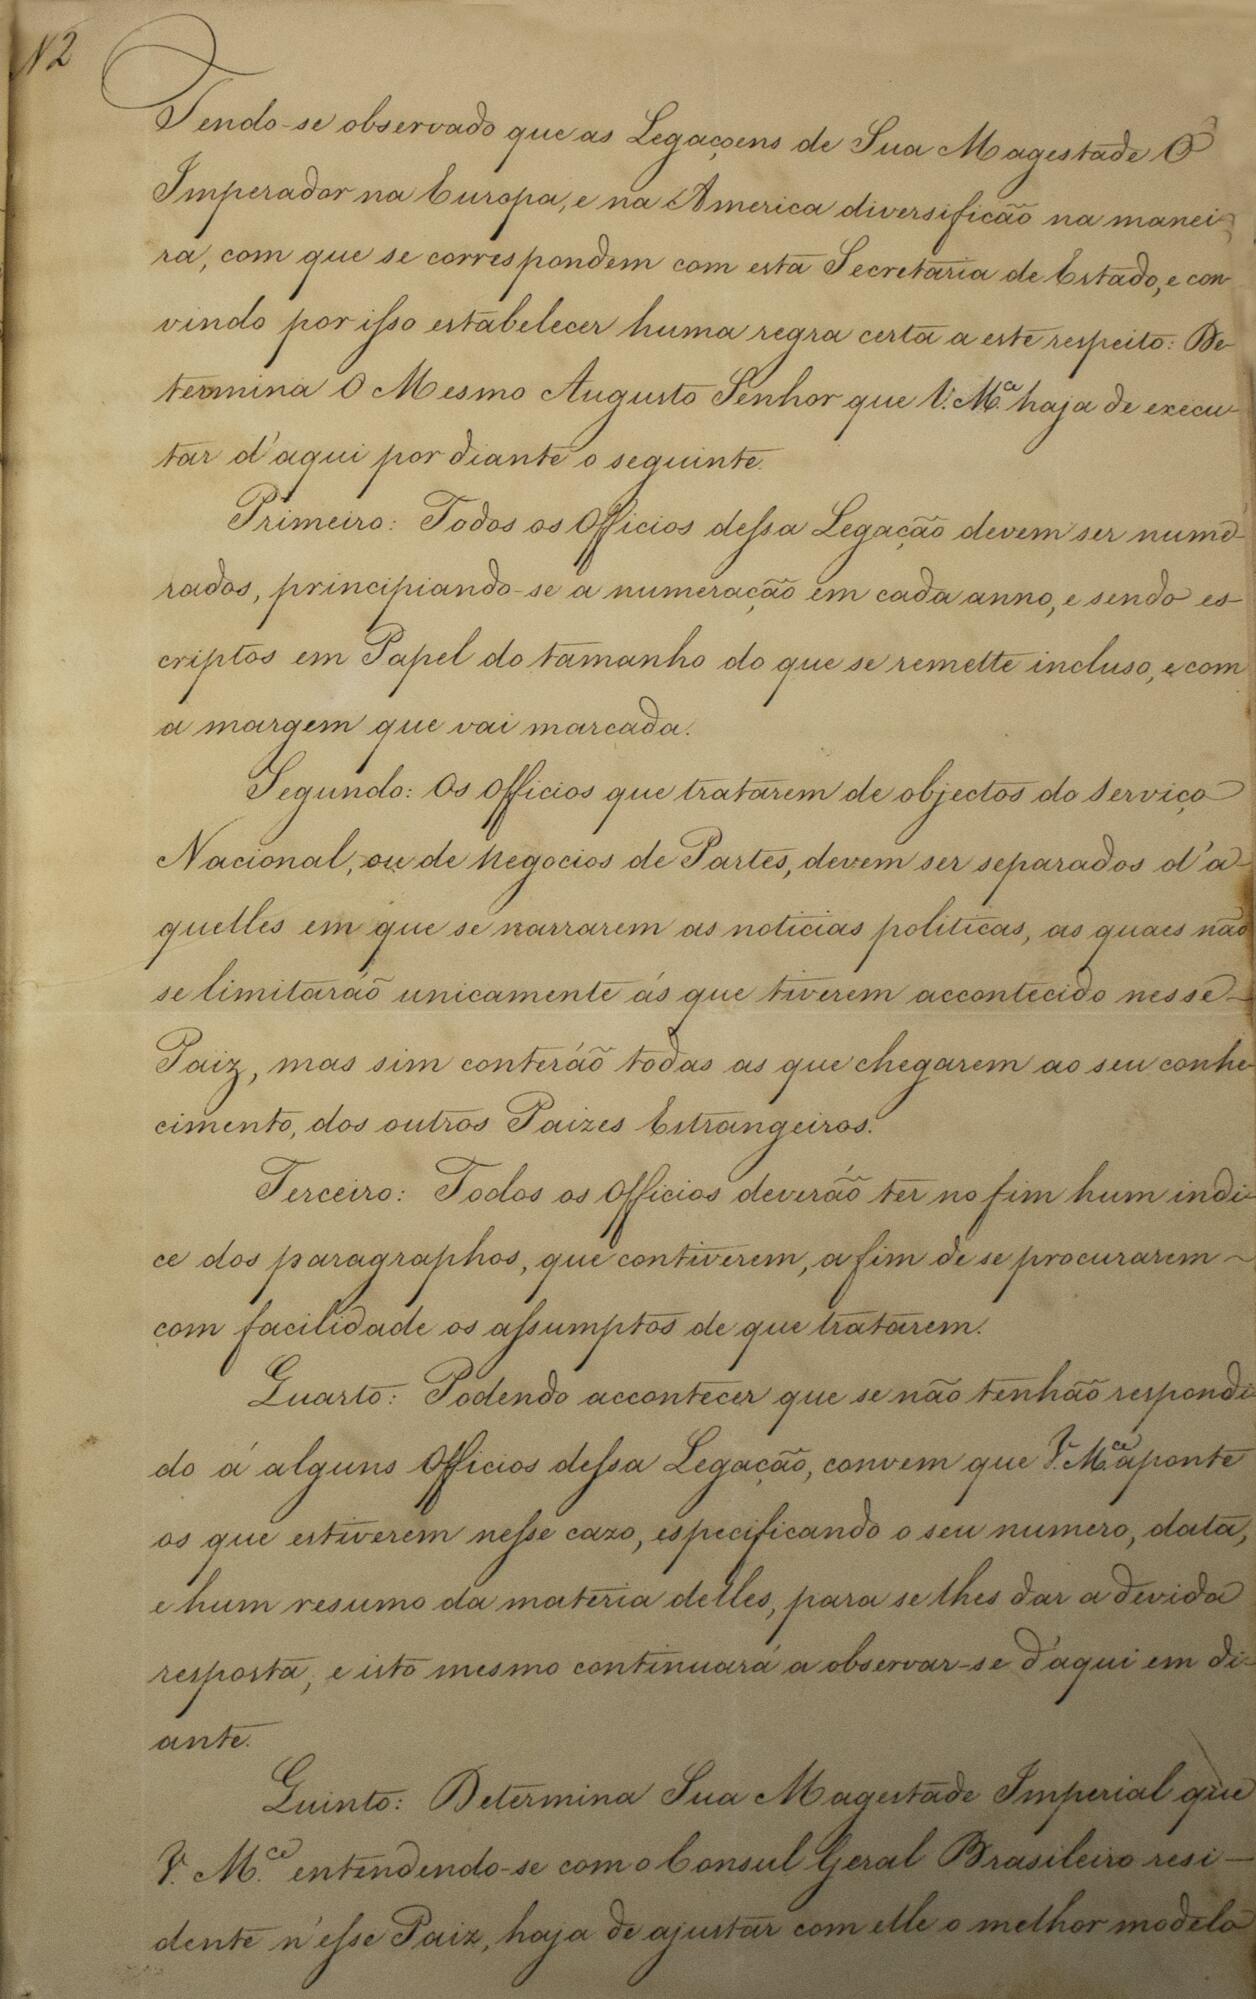 N2
Tendo-se observado que as Legaçoens de Sua Magestade O
Imperador na Europa, e na America diversificão na manei-
ra, com que se correspondem com esta Secretaria de Estado, e con-
vindo por isso estabelecer huma regra certa a este respeito: De-
termina O Mesmo Augusto Senhor que V. M.ce haja de execu-
tar d'aqui por diante o seguinte.
Primeiro: Todos os Officios dessa Legação devem ser nume-
rados, principiando-se a numeração em cada anno, e sendo es-
criptos em Papel do tamanho do que se remette incluso, e com
a margem que vai marcada.
Segundo: Os Officios que tratarem de objectos do Serviço
Nacional, ou de Negocios de Partes, devem ser separados d'a-
quelles em que se narrarem as noticias politicas, as quaes não
se limitaráõ unicamente ás que tiverem accontecido nesse
Paiz, mas sim conteráõ todas as que chegarem ao seu conhe-
cimento, dos outros Paizes Estrangeiros.
Terceiro: Todos os Officios deveráõ ter no fim hum indi-
ce dos paragraphos, que contiverem, a fim de se procurarem
com facilidade os assumptos de que tratarem.
Quarto: Podendo accontecer que se não tenhão respondi-
do á alguns Officios dessa Legação, convem que V. M.ce aponte
os que estiverem nesse cazo, especificando o seu numero, data,
e hum resumo da materia delles, para se lhes dar a devida
resposta, e isto mesmo continuará a observar-se d'aqui em di-
ante.
Quinto: Determina Sua Magestade Imperial que
V. M.ce entendendo-se com o Consul Geral Brasileiro resi-
dente n'esse Paiz, haja de ajustar com elle o melhor modelo